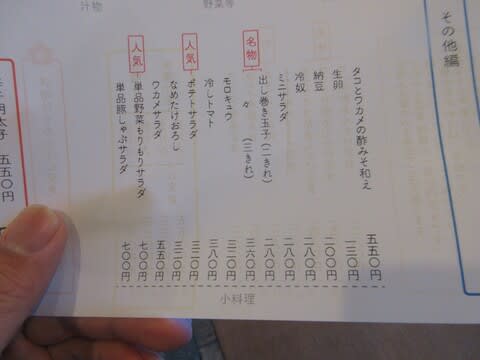 その他編
汁物
野菜等
タコとワカメの酢みそ和え 五五〇円
生卵 一三〇円
納豆 二〇〇円
冷奴 二八〇円
ミニサラダ 二八〇円
名物 出し巻き玉子(二きれ) 二八〇円
々 (三きれ) 三六〇円
モロキュウ 三二〇円
冷しトマト 三八〇円
人気 ポテトサラダ 三二〇円
なめたけおろし 三二〇円
ワカメサラダ 五五〇円
人気 単品野菜もりもりサラダ 七〇〇円
単品豚しゃぶサラダ 七〇〇円
小料理
明太子 五五〇円